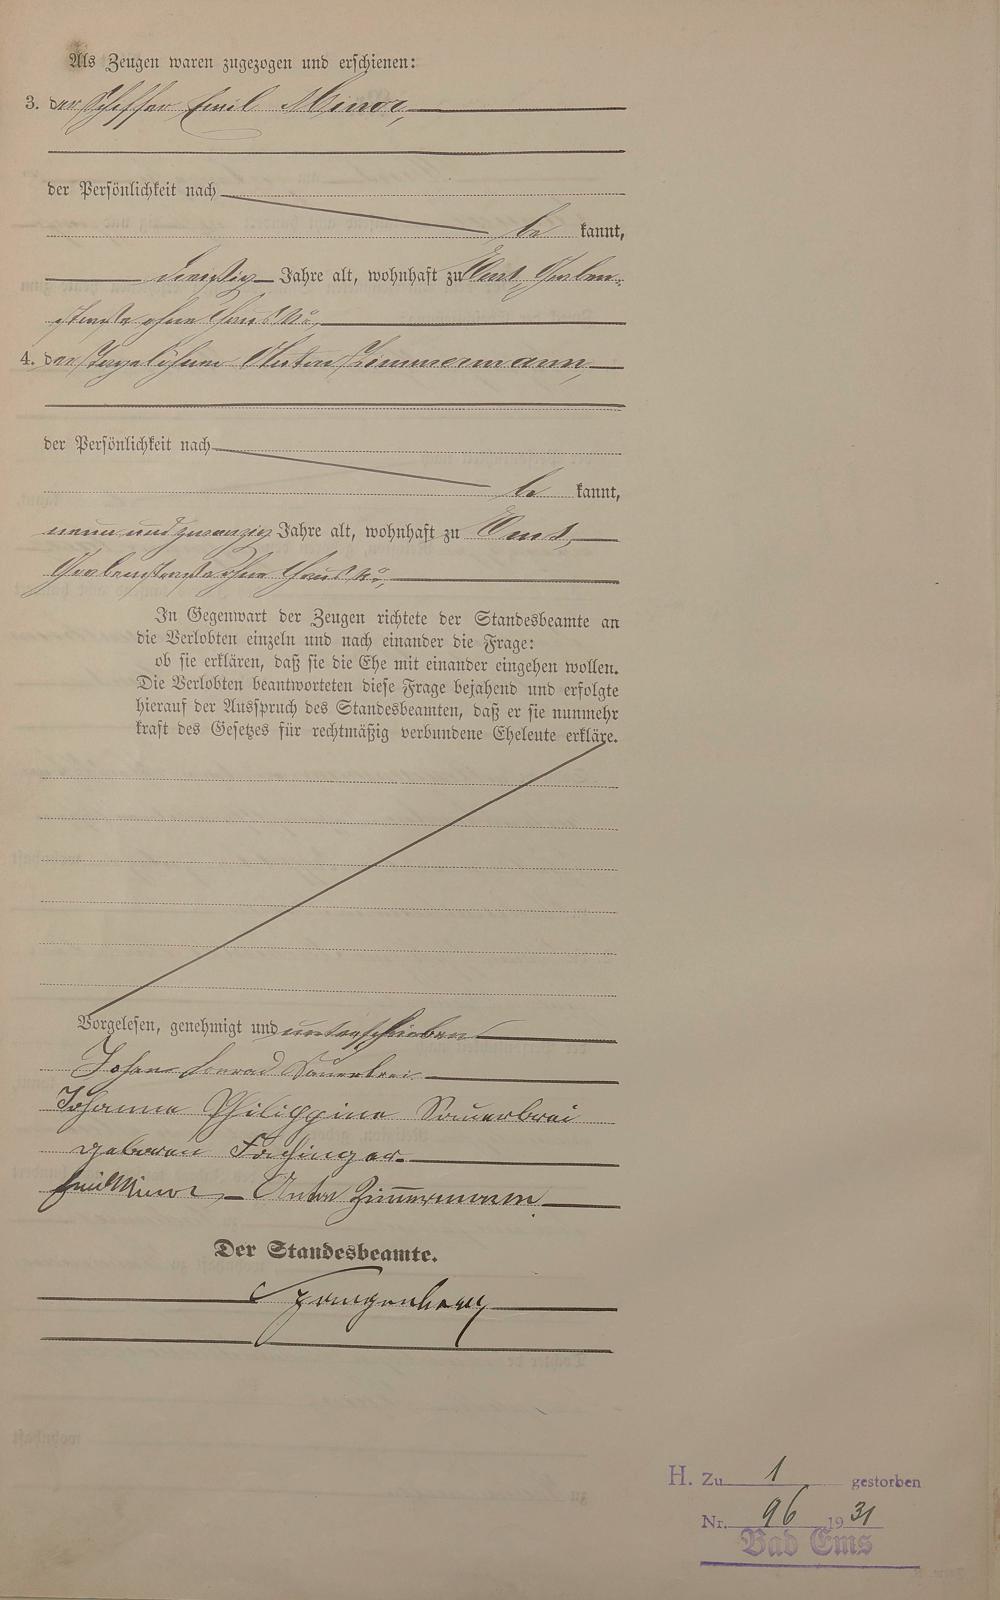 Als Zeugen waren zugezogen und erschienen:
3. der Schiffer Emil Minor,
der Persönlichkeit nach
be kannt,
dreißig Jahre alt, wohnhaft zu Ems, Graben-
straße ohne Haus No,
4. der Tagelöhner Anton Zimmermann,
der Persönlichkeit nach
be kannt,
neun und zwanzig Jahre alt, wohnhaft zu Ems,
Grabenstraße ohne Haus No,
In Gegenwart der Zeugen richtete der Standesbeamte an
die Verlobten einzeln und nach einander die Frage:
ob sie erklären, daß sie die Ehe mit einander eingehen wollen.
Die Verlobten beantworteten diese Frage bejahend und erfolgte
hierauf der Ausspruch des Standesbeamten, daß er sie nunmehr
kraft des Gesetzes für rechtmäßig verbundene Eheleute erkläre.
Vorgelesen, genehmigt und unterschrieben
Johan Conrad Sauerbrei
Johanna Philippina Sauerbrei
geboren Fachinger
Emil Minor Anton Zimmermann
Der Standesbeamte.
Spangenberg
H. Zu 1 gestorben
Nr. 96 1931
Bad Ems